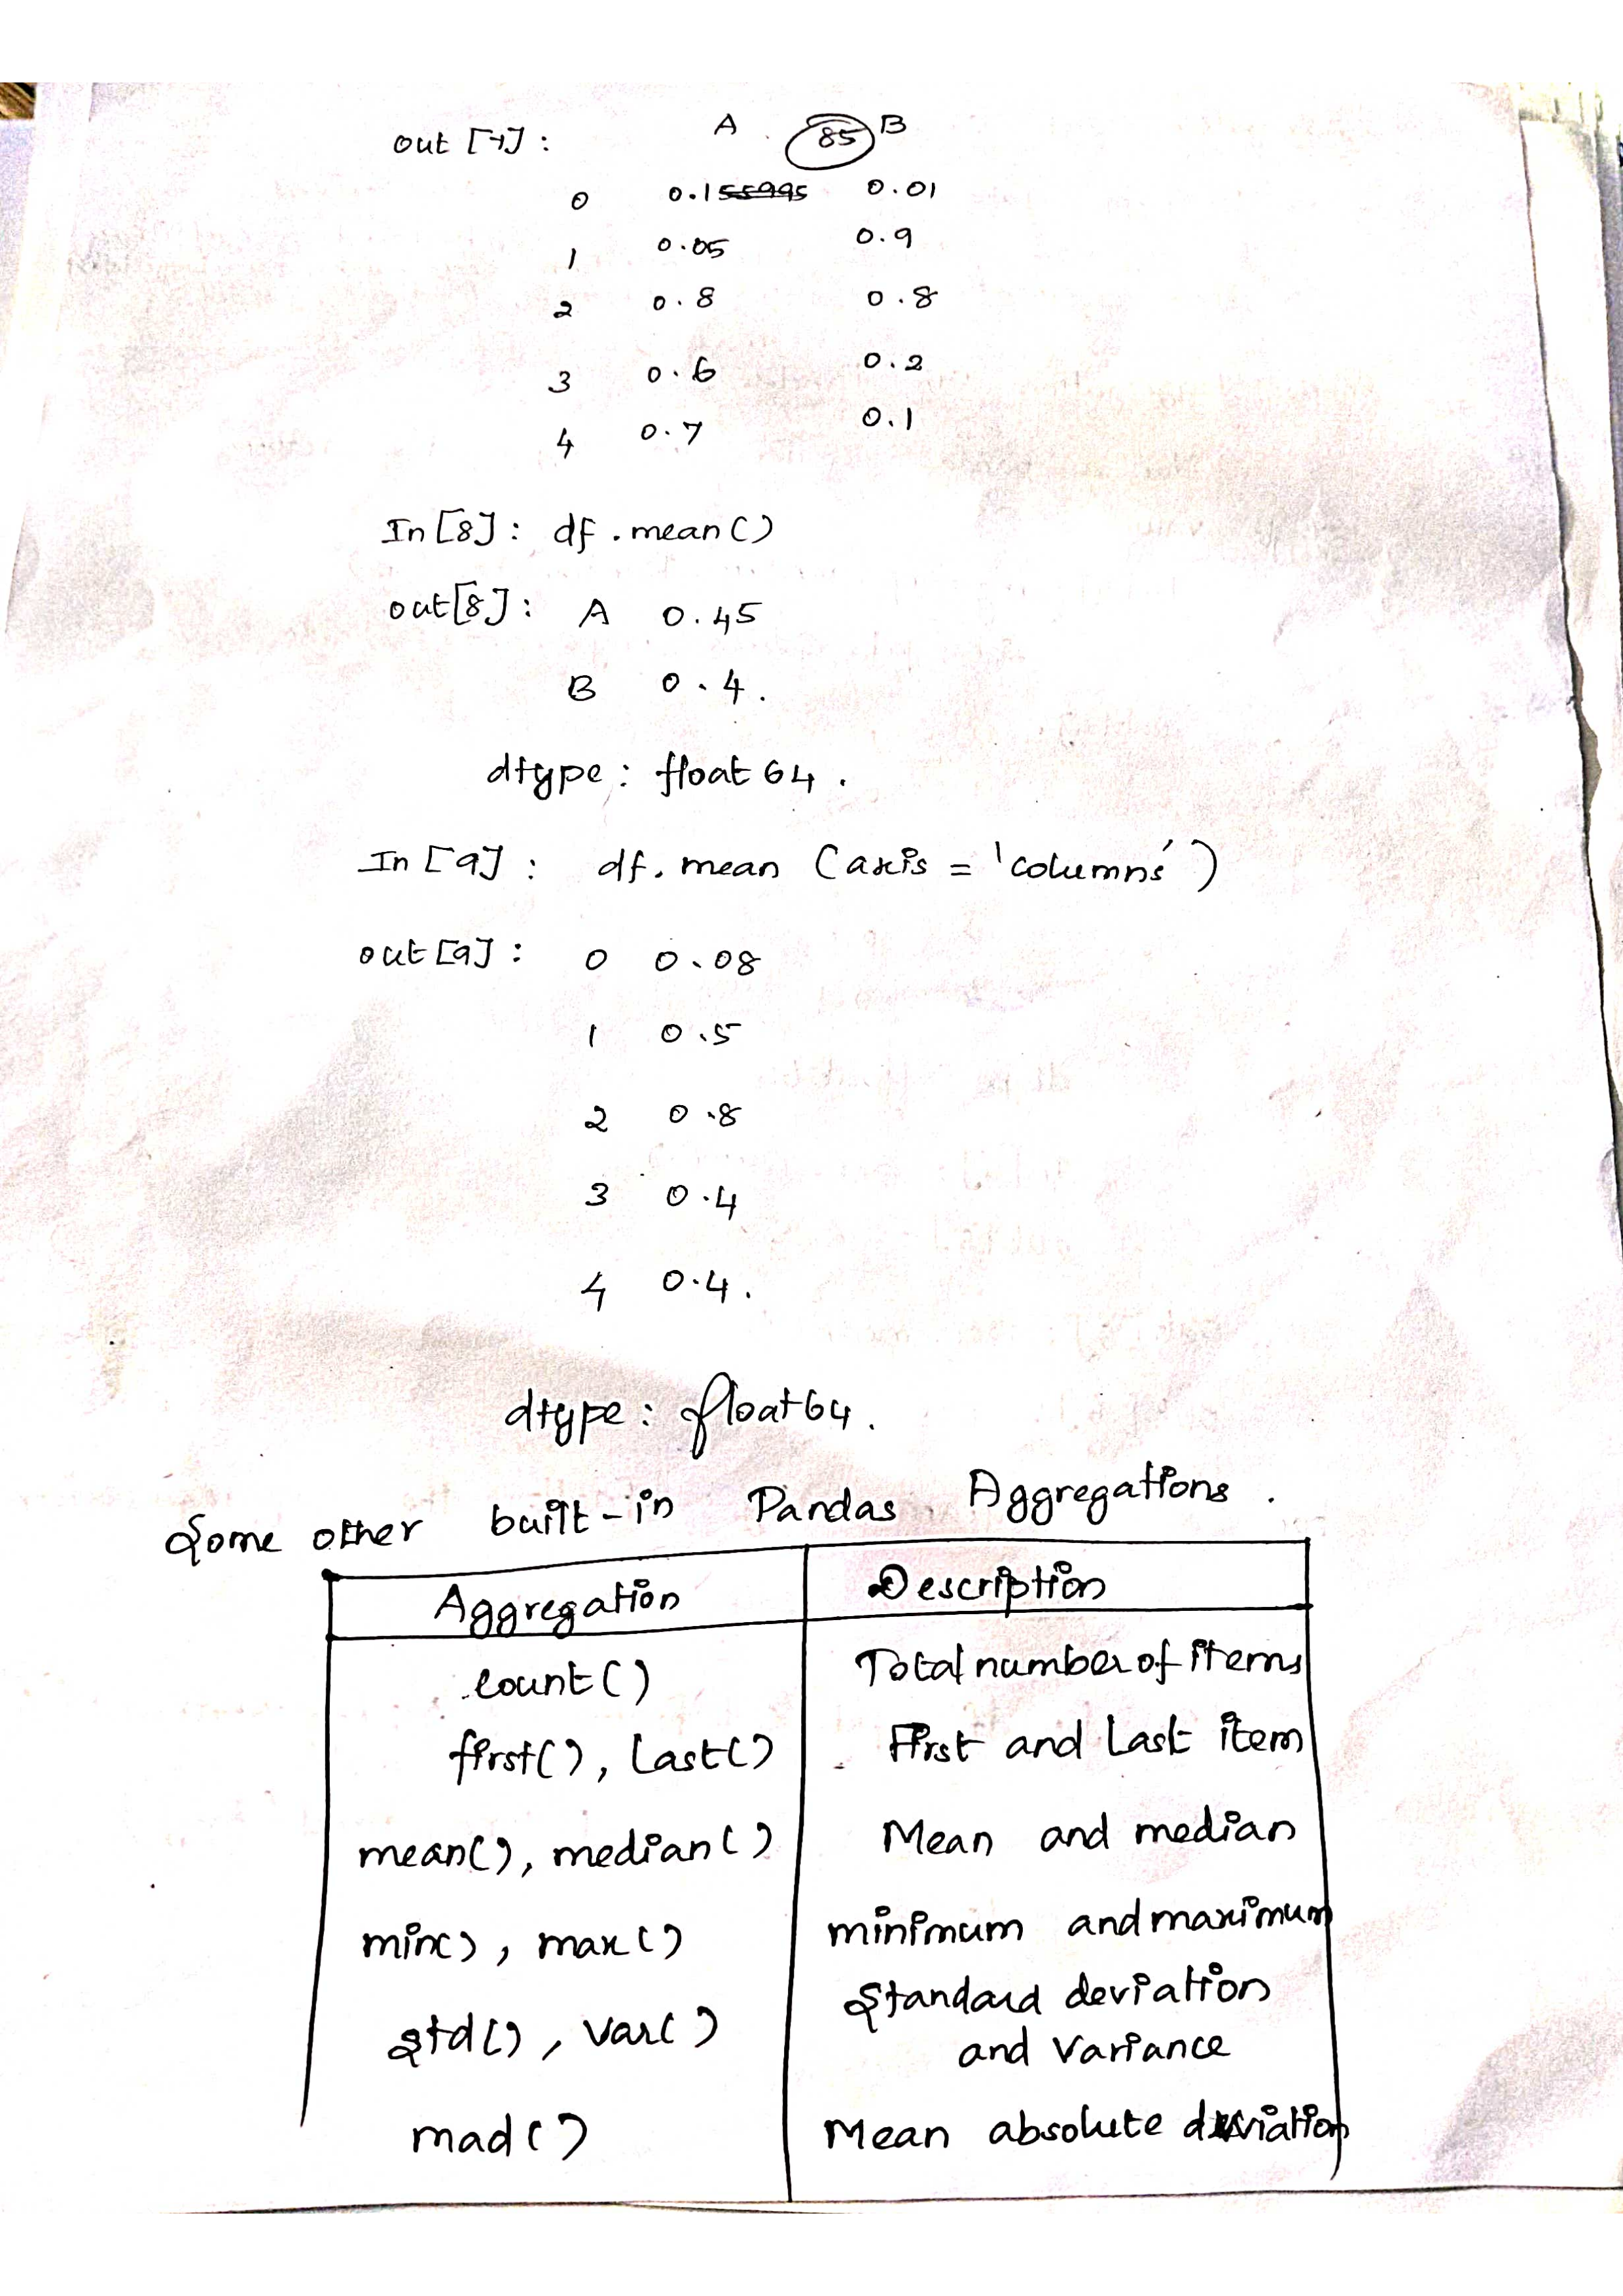 85
out [7] : A B
0 0.1 0.01
1 0.05 0.9
2 0.8 0.8
3 0.6 0.2
4 0.7 0.1
In [8] : df . mean ()
out [8] : A 0.45
B 0.4 .
dtype : float 64 .
In [9] : df. mean (axis = 'columns')
out [9] : 0 0.08
1 0.5
2 0.8
3 0.4
4 0.4 .
dtype : float64 .
Some other built-in Pandas Aggregations .
Aggregation Description
count() Total number of items
first(), Last() First and Last item
mean(), median() Mean and median
min(), max() minimum and maximum
std(), var() Standard deviation
and Variance
mad() Mean absolute deviation